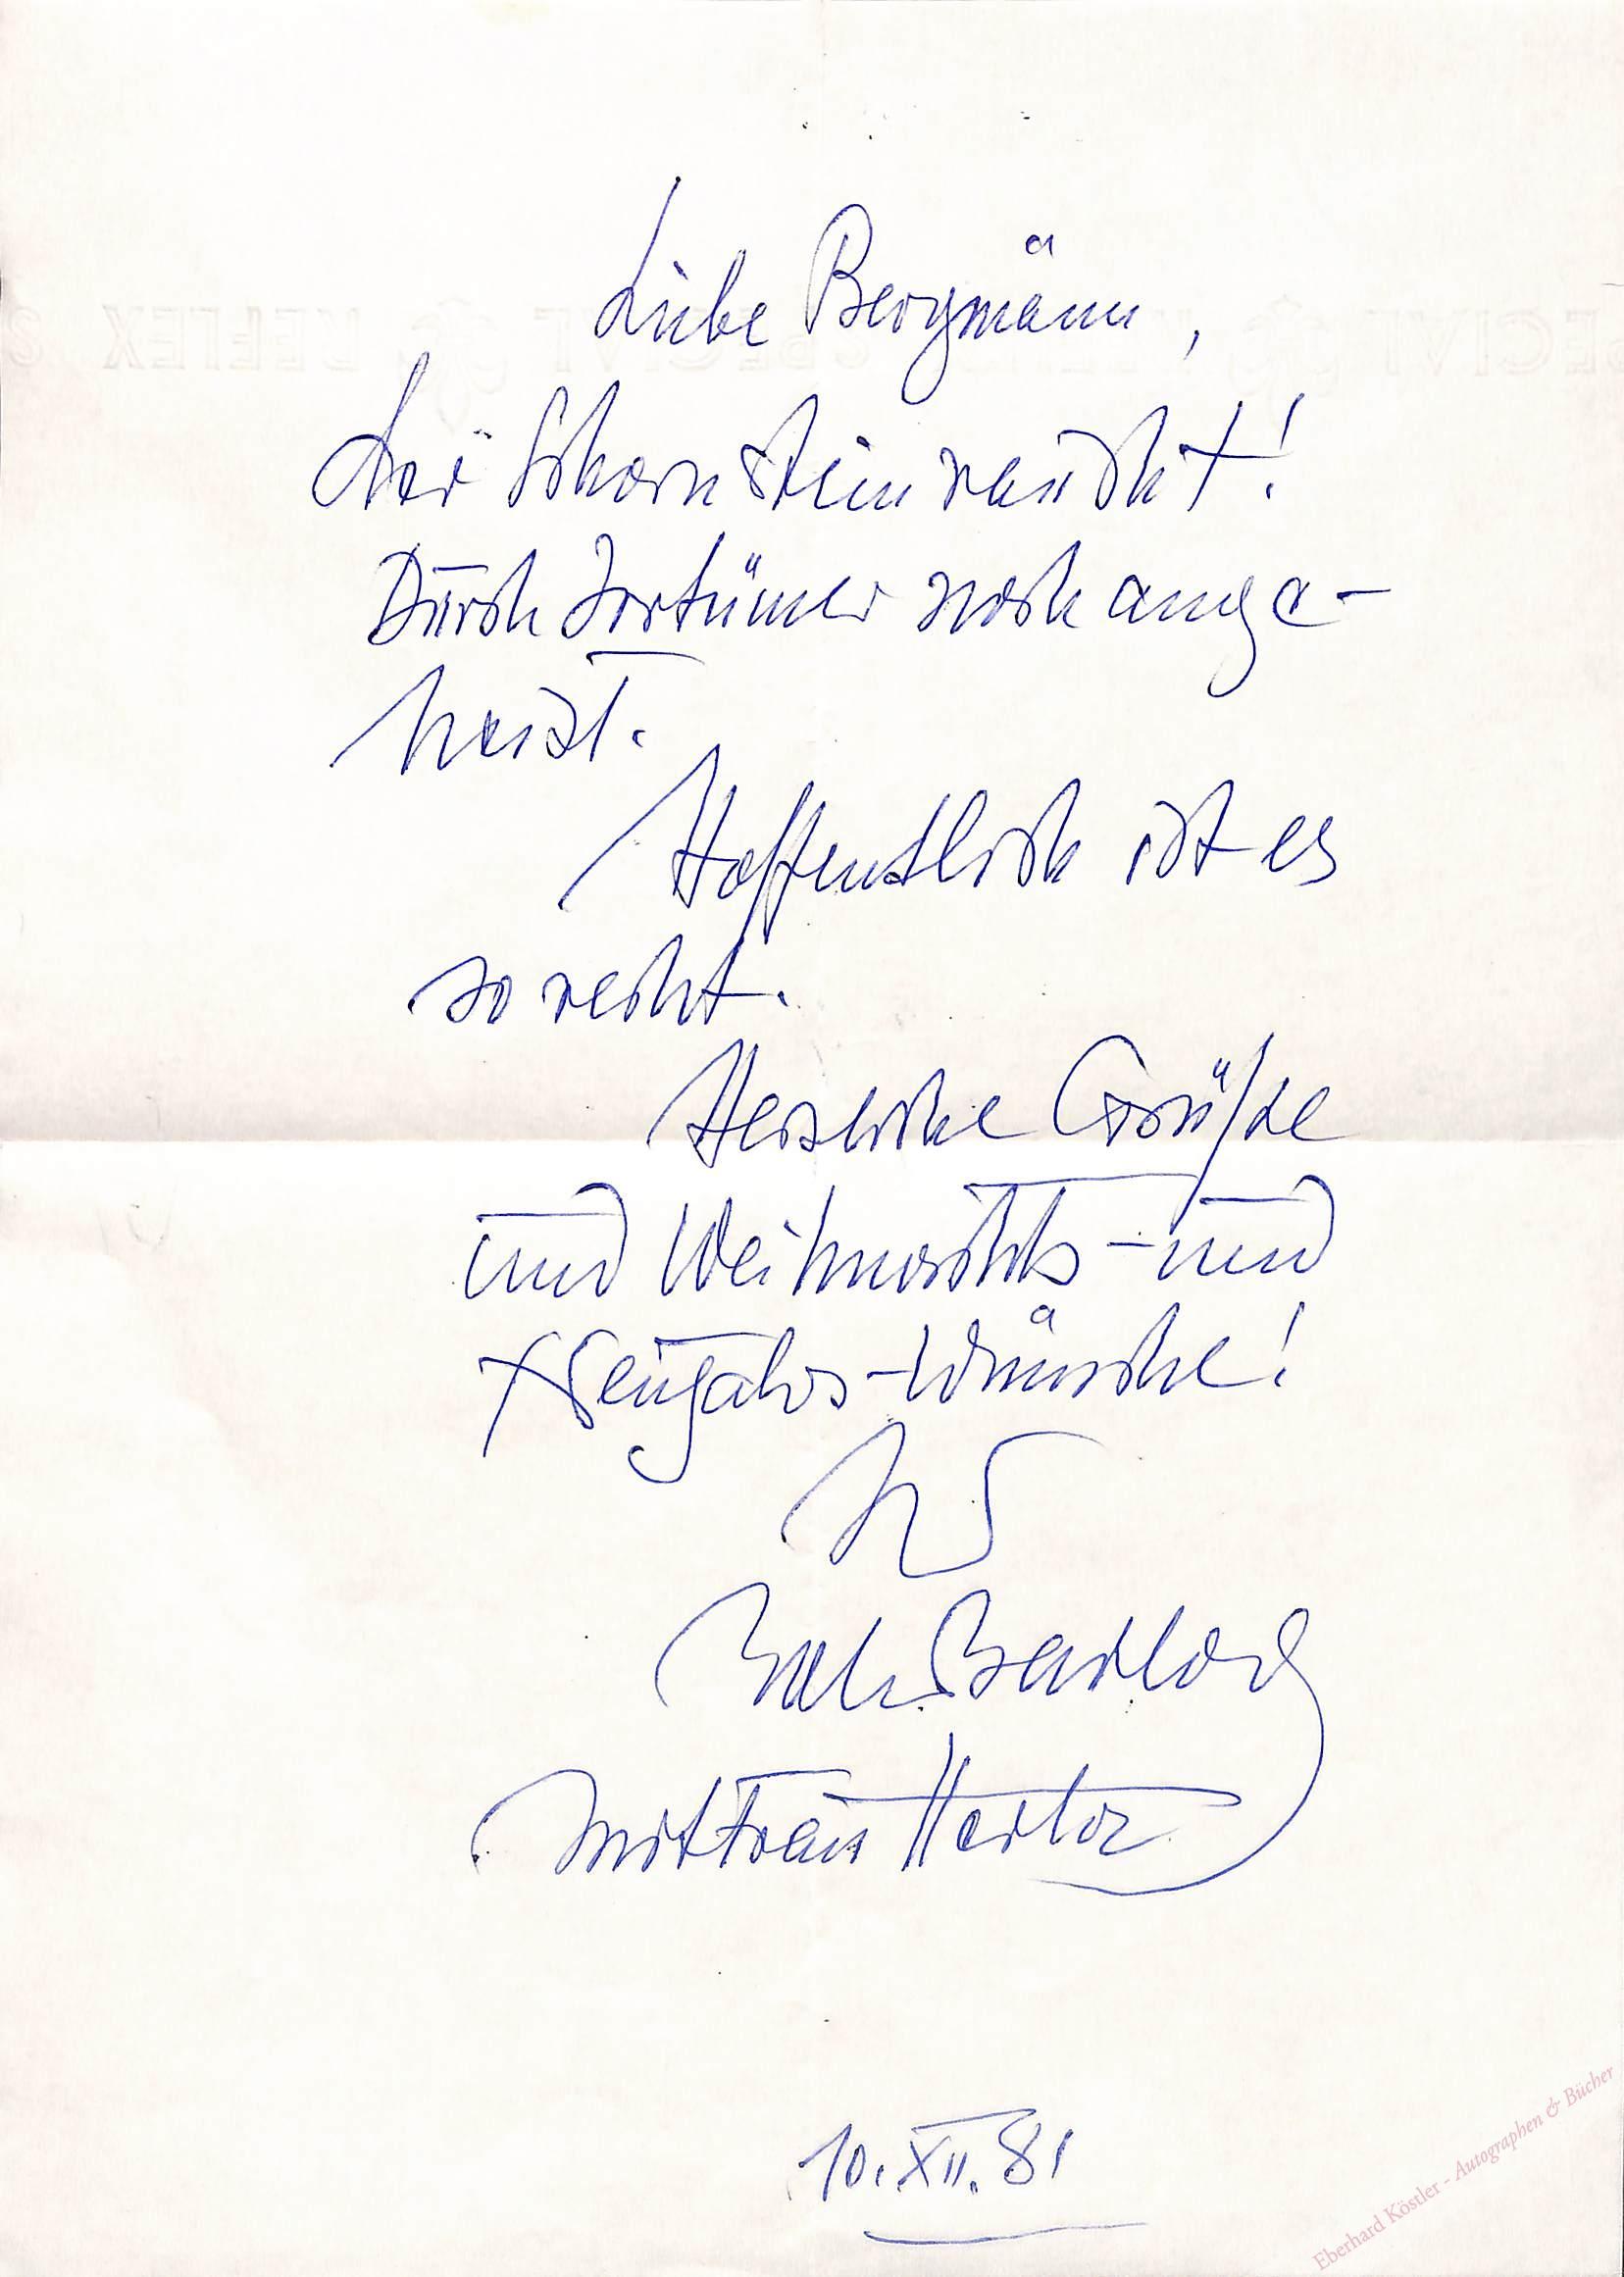 Liebe Bergmänn,
der Schornstein raucht!
Durch Irrtümer noch ange-
heizt.
Hoffentlich ist es
so recht.
Herzliche Grüße
und Weihnachts- und
Neujahrs-Wünsche!
Ihr
Barlog
mit Frau Herta
10. XII. 81
Eberhard Köstler - Autographen & Bücher